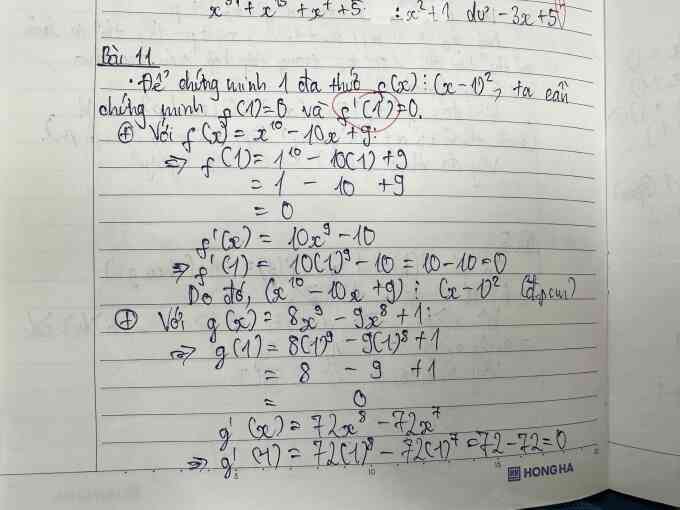 x³¹ + x¹³ + x⁷ + 5 : x² + 1 dư -3x + 5
Bài 11
• Để chứng minh 1 đa thức f(x) ⋮ (x - 1)², ta cần
chứng minh f(1) = 0 và f'(1) = 0.
⊕ Với f(x) = x¹⁰ - 10x + 9:
⇒ f(1) = 1¹⁰ - 10(1) + 9
= 1 - 10 + 9
= 0
f'(x) = 10x⁹ - 10
⇒ f'(1) = 10(1)⁹ - 10 = 10 - 10 = 0
Do đó, (x¹⁰ - 10x + 9) ⋮ (x - 1)² (đpcm)
⊕ Với g(x) = 8x⁹ - 9x⁸ + 1:
⇒ g(1) = 8(1)⁹ - 9(1)⁸ + 1
= 8 - 9 + 1
= 0
g'(x) = 72x⁸ - 72x⁷
⇒ g'(1) = 72(1)⁸ - 72(1)⁷ = 72 - 72 = 0
5 10 15
HONG HA